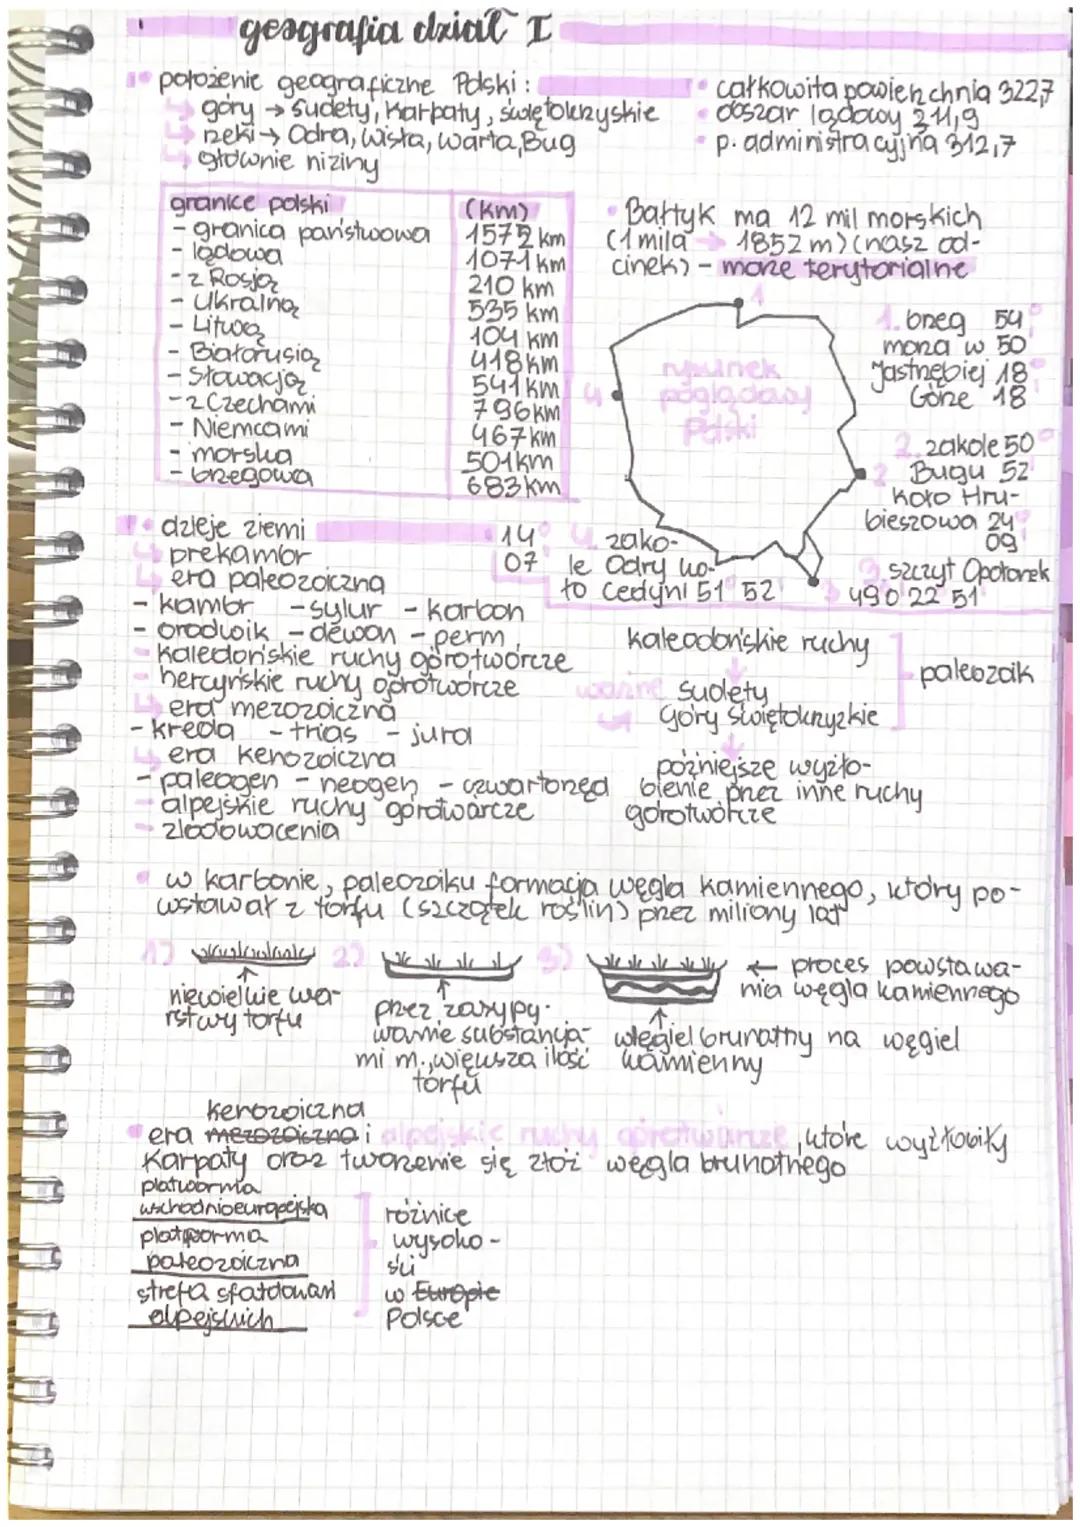 geografia dział I
położenie geograficzne Polski:
góry → Sudety, Karpaty, świętokrzyskie
rzeki → Odra, Wisła, Warta, Bug
głównie niziny
całkowita powierzchnia 322,7
obszar lądowy 311,9
p. administracyjna 312,7
granice polski (km)
- granica państwowa 1572 km
- lądowa 1071 km
- z Rosją 210 km
- Ukrainą 535 km
- Litwą 104 km
- Białorusią 418 km
- Słowacją 541 km
- z Czechami 796 km
- Niemcami 467 km
- morska 501 km
- brzegowa 683 km
Bałtyk ma 12 mil morskich
(1 mila → 1852 m) (nasz od-
cinek) - morze terytorialne
1
rysunek
poglądowy
Polski
4
2
3
1. brzeg 54°
morza w 50'
Jastrzębiej 18°
Górze 18'
2. zakole 50°
Bugu 52'
koło Hru-
bieszowa 24°
09'
3. szczyt Opołonek
49° 0 22 51
14° 4. zako-
07' le Odry ko-
ło Cedyni 51° 52'
dzieje ziemi
prekambr
era paleozoiczna
- kambr - sylur - karbon
- ordowik - dewon - perm
- kaledońskie ruchy górotwórcze
- hercyńskie ruchy górotwórcze
era mezozoiczna
- kreda - trias - jura
era kenozoiczna
- paleogen - neogen - czwartorzęd
- alpejskie ruchy górotwórcze
- zlodowacenia
kaleodońskie ruchy
ważne Sudety
Góry Świętokrzyzkie
paleozoik
późniejsze wyżło-
bienie przez inne ruchy
górotwórcze
w karbonie, paleozoiku formacja węgla kamiennego, który po-
wstawał z torfu (szczątek roślin) przez miliony lat
1) 2) 3)
niewielkie wa-
rstwy torfu
przez zasypy-
wanie substancja-
mi m., większa ilość
torfu
← proces powstawa-
nia węgla kamiennego
węgiel brunatny na węgiel
kamienny
kenozoiczna
era mezozoiczna i alpejskie ruchy górotwórcze, które wyżłobiły
Karpaty oraz tworzenie się złóż węgla brunatnego
platworma
wschodnioeuropejska
platforma
paleozoiczna
strefa sfałdowań
alpejskich
różnice
wysoko-
ści
w Europie
Polsce